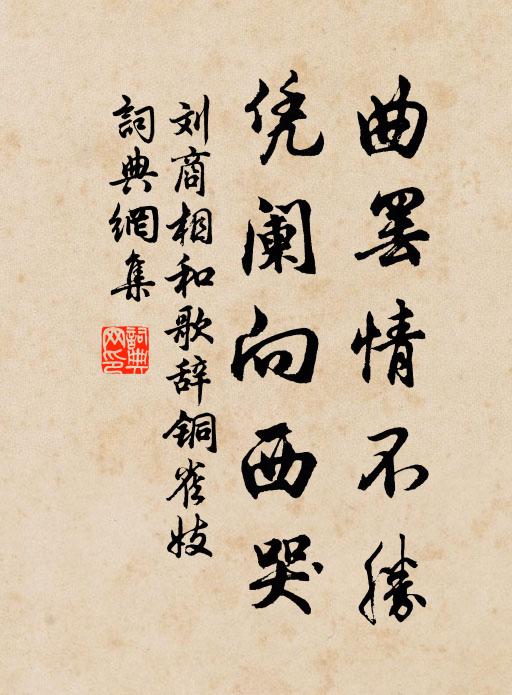 曲罢情不胜
凭阑向西哭
刘商相和歌辞铜雀妓
詞典網集
詞典網印